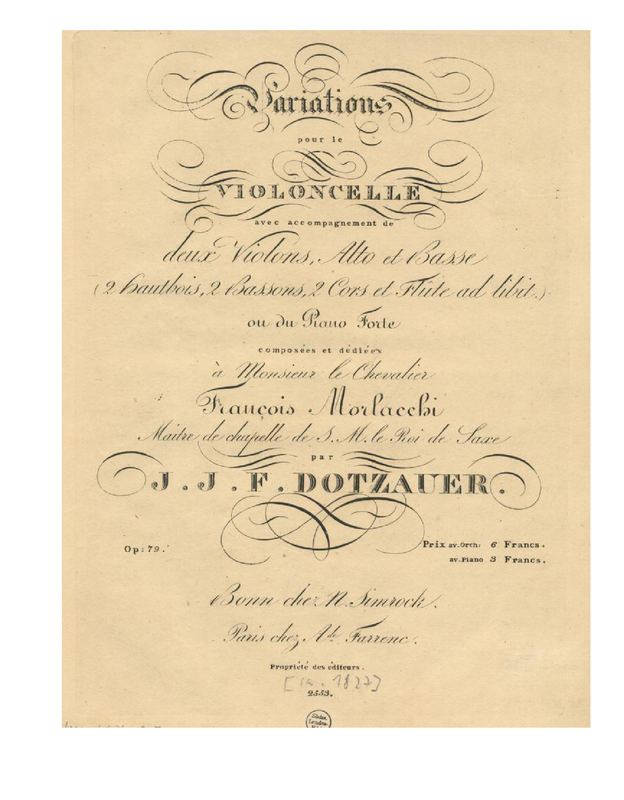 Variations
pour le
VIOLONCELLE
avec accompagnement de
deux Violons, Alto et Basse
(2 Hautbois, 2 Bassons, 2 Cors et Flûte ad libit.)
ou du Piano Forte
composées et dédiées
à Monsieur le Chevalier
François Morlacchi
Maitre de chapelle de S. M. le Roi de Saxe
par
J. J. F. DOTZAUER.
Op: 79.
Prix av. Orch: 6 Francs.
av. Piano 3 Francs.
Bonn chez N. Simrock.
Paris chez Ade Farrenc.
Propriété des éditeurs.
[ca. 1827]
2553.